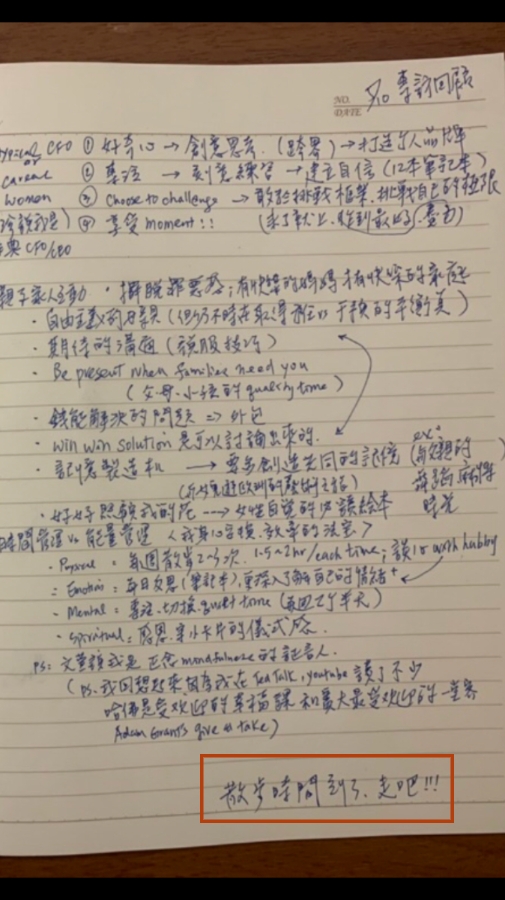 NO.
DATE
專訪回顧
CFO ① 好奇心 → 創意思考 (跨界) → 打造個人品牌
career ② 專注 → 刻意練習 → 建立自信 (12本筆記本)
women ③ choose to challenge → 敢於挑戰框架,挑戰自己的極限
④ 享受 moment!!
典CFO/CEO
親子家人互動 · 擺脫罪惡感;有快樂的媽媽才有快樂的家庭
· 自由主義的母親 (但仍不時在取得放任vs干預的平衡美)
· 期待的溝通 (說服技巧)
· Be present when families need you
(父母、小孩的quality time)
· 錢能解決的問題 => 外包
· win win solution 是可以討論出來的.
· 記憶製造机 → 要去創造共同的記憶
ex:
(與父親的
麻將
時光
· 好好照顧我的花 → 女性自覺的必讀繪本
時間管理 vs 能量管理 <我身心字換,效率的法宝>
· Physical = 每週散步2~3次. 1.5~2hr/each time; 談心 with hubby
= Emotion = 每日反思 (筆記本),更深入了解自己的情緒+
· Mental = 專注、切換、quiet time (每週2個半天)
· Spiritual = 感恩、小卡片的儀式感.
ps: 文萱說我是正念 mindfulness 的証言人.
(ps.我回想起來因為我在 Tea Talk, youtube 讀了不少
哈佛最受歡迎的幸福課和華大最受歡迎的
Adam Grants give & take)
散步時間到了、走吧!!!